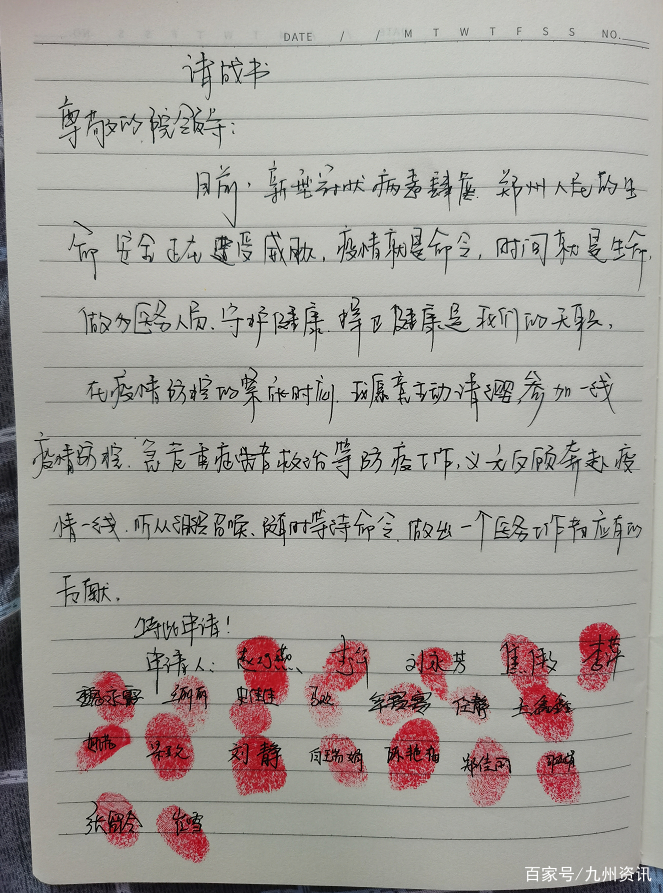 DATE / / M T W T F S S NO.
请战书
尊敬的院领导:
目前,新型冠状病毒肆虐,郑州人民的生
命安全正在遭受威胁,疫情就是命令,时间就是生命,
做为医务人员、守护健康、捍卫健康是我们的天职,
在疫情防控的紧张时刻,我愿意主动请缨,参加一线
疫情防控、急危重症患者救治等防疫工作,义无反顾奔赴疫
情一线,听从组织召唤、随时等待命令,做出一个医务工作者应有的
贡献。
特此申请!
申请人: 刘永芳 焦敏 李萍
任静
刘静 陈艳梅
崔雪
百家号/九州资讯